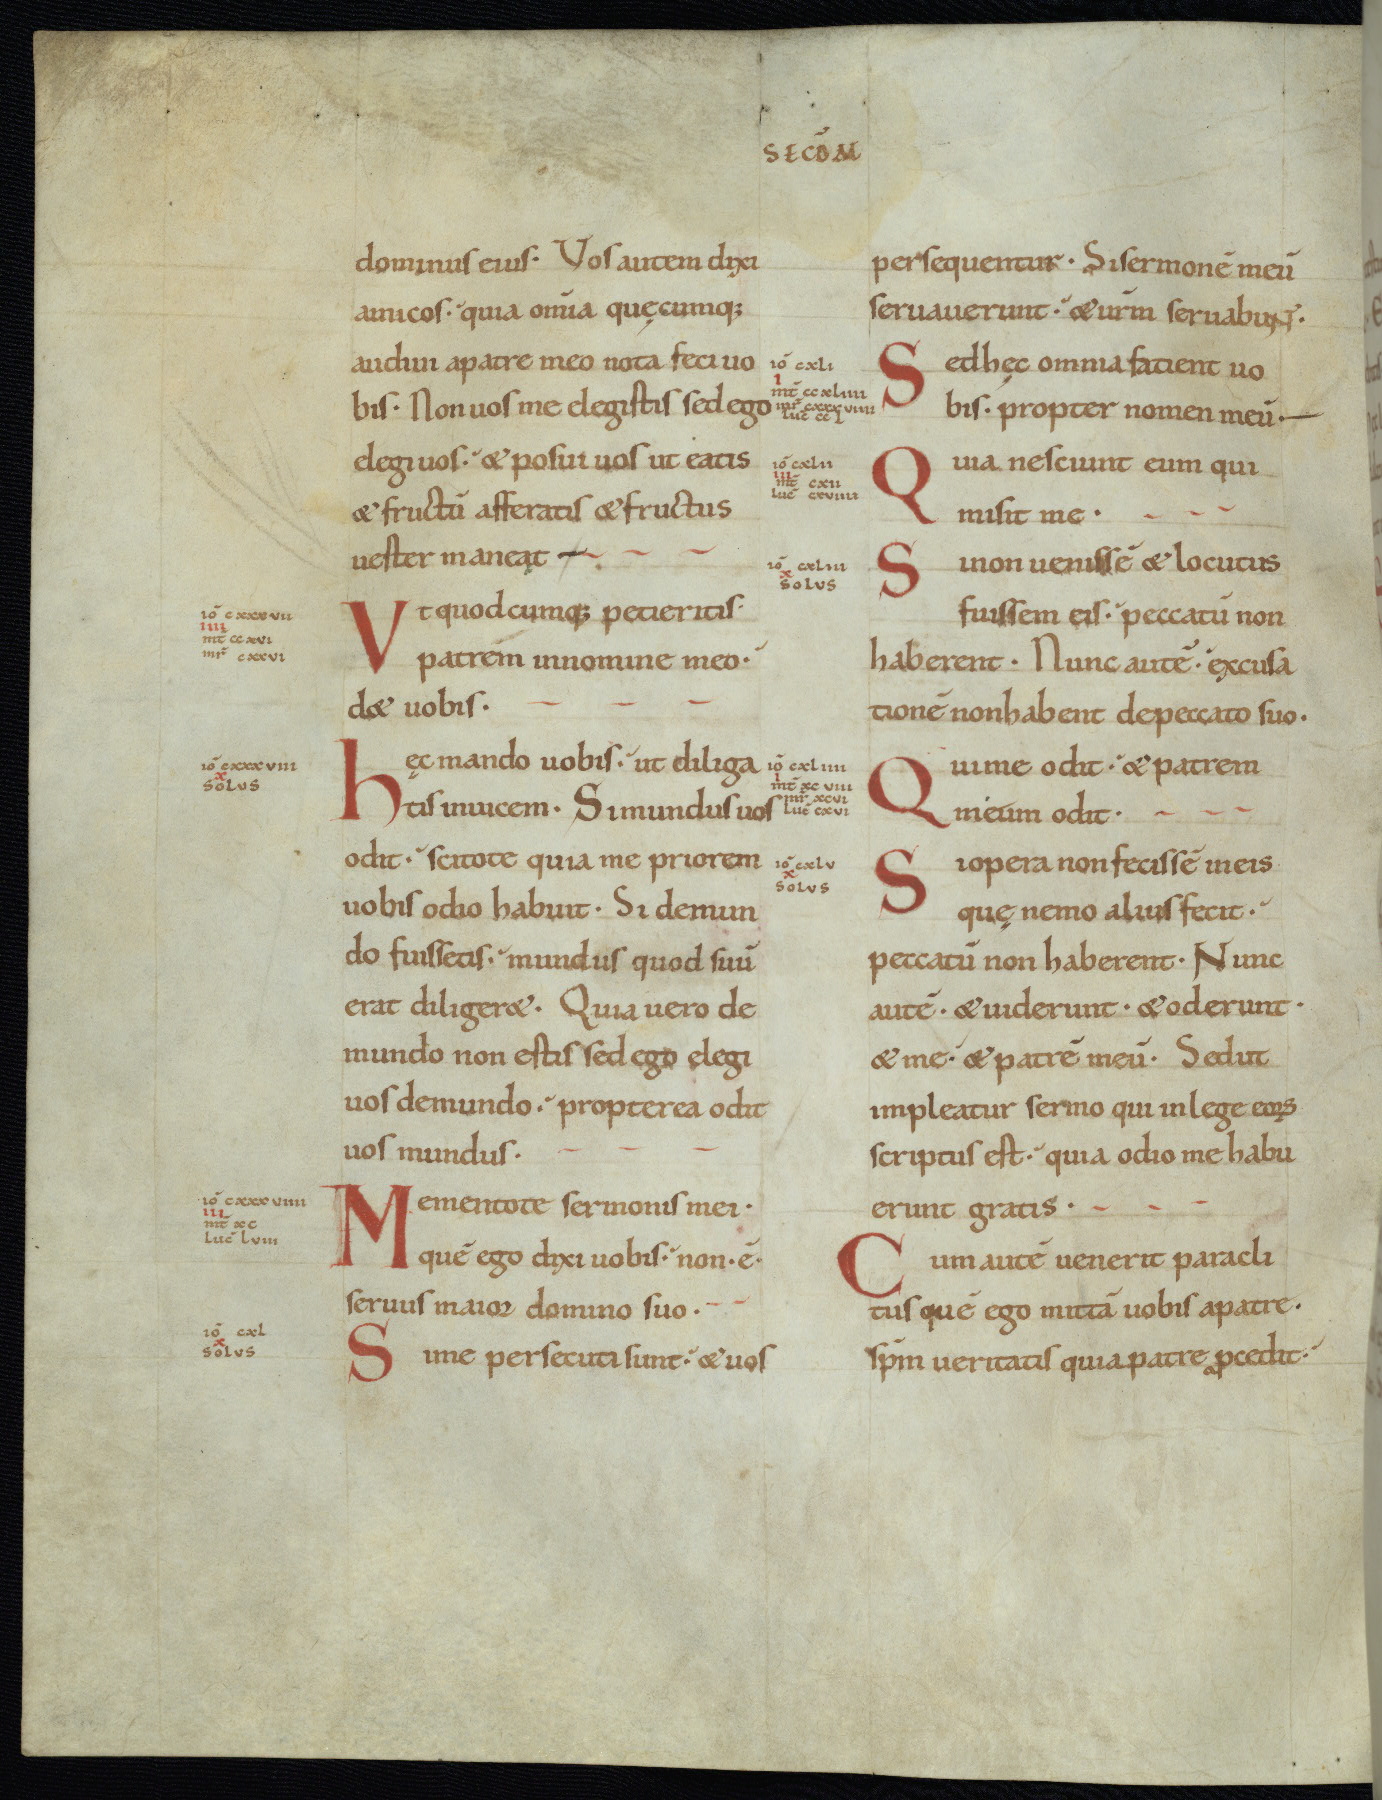 SECD̄M
dominus eius· Vos autem dixi
amicos·́ quia om̄ia quęcumq;
audiui apatre meo nota feci uo
bis· Non uos me elegistis sed ego
elegi uos·́ & posui uos ut eatis
& fructū afferatis & fructus
uester maneat
iō cxxxvii
iiii
mt̄ ccxvi
mr̄ cxxvi
Vt quodcumq; petieritis·
patrem innomine meo·́
d& uobis·
iō cxxxviii
x
solus
hęc mando uobis·́ ut diliga
tis inuicem· Si mundus uos
odit·́ scitote quia me priorem
uobis odio habuit· Si demun
do fuissetis·́ mundus quod suū
erat diliger&· Quia uero de
mundo non estis sed ego elegi
uos demundo·́ propterea odit
uos mundus·
iō cxxxviiii
iii
mt̄ xc
luc̄ lviii
Mementote sermonis mei·
quē ego dixi uobis·́ non·ē·
seruus maior domino suo·
iō cxl
x
solus
Si me persecuti sunt·́ & uos
persequentur· Si sermonē meū
seruauerunt·́ & ur̄m seruabunt·
iō cxli
i
mt̄ ccxliiii
mr̄ cxxxviiii
luc̄ ccl
Sed hęc omnia facient uo
bis· propter nomen meū·
iō cxlii
iii
mt̄ cxii
luc̄ cxviiii
Quia nesciunt eum qui
misit me·
iō cxliii
x
solus
Si non uenissē & locutus
fuissem eis·́ peccatū non
haberent· Nunc autē·́ excusa
tionē nonhabent depeccato suo·
iō cxliiii
i
mt̄ xcviii
mr̄ xcvi
luc̄ cxvi
Qui me odit·́ & patrem
meum odit·
iō cxlv
x
solus
Si opera non fecissē in eis
quę nemo alius fecit·́
peccatū non haberent· Nunc
autē· & uiderunt· & oderunt·
& me·́ & patrē meū· Sed ut
impleatur sermo qui inlege eoꝝ
scriptus est·́ quia odio me habu
erunt gratis·
Cum autē uenerit paracli
tus quē ego mittā uobis apatre·
sp̄m ueritatis quia patre ꝓcedit·́